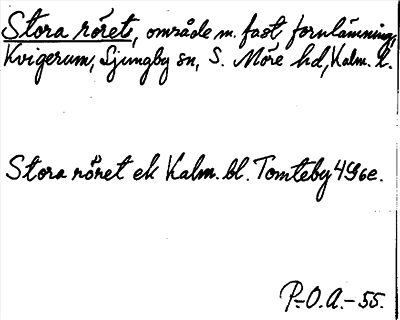 Stora röret, område m. fast fornlämning,
Kvigerum, Ljungby sn, S. Möre hd, Kalm. l.
Stora röret ek Kalm. bl. Tomteby 4G6e.
P.-O.A.-55.